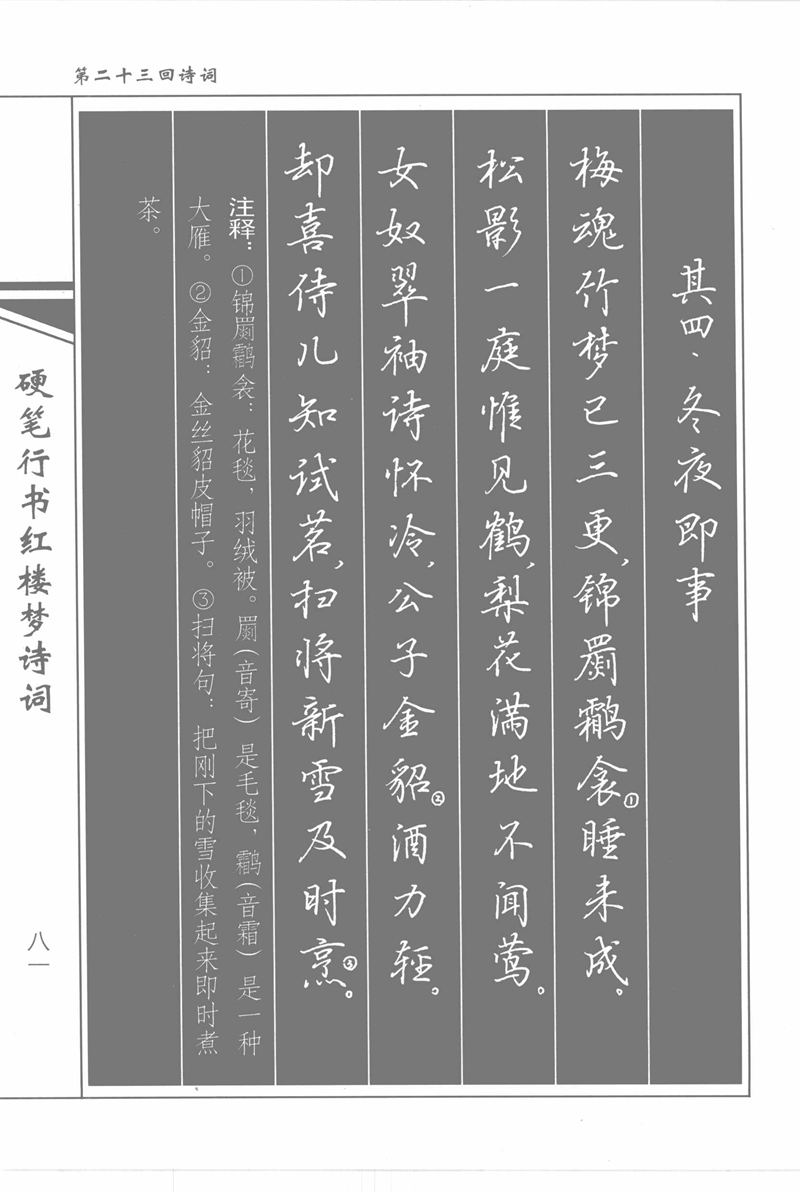 第二十三回诗词
其四、冬夜即事
梅魂竹梦已三更，锦罽鹴衾①睡未成。
松影一庭惟见鹤，梨花满地不闻莺。
女奴翠袖诗怀冷，公子金貂②酒力轻。
却喜侍儿知试茗，扫将新雪及时烹③。
注释：①锦罽鹴衾：花毯，羽绒被。罽(音寄)是毛毯，鹴(音霜)是一种
大雁。②金貂：金丝貂皮帽子。③扫将句：把刚下的雪收集起来即时煮
茶。
硬笔行书红楼梦诗词
八一